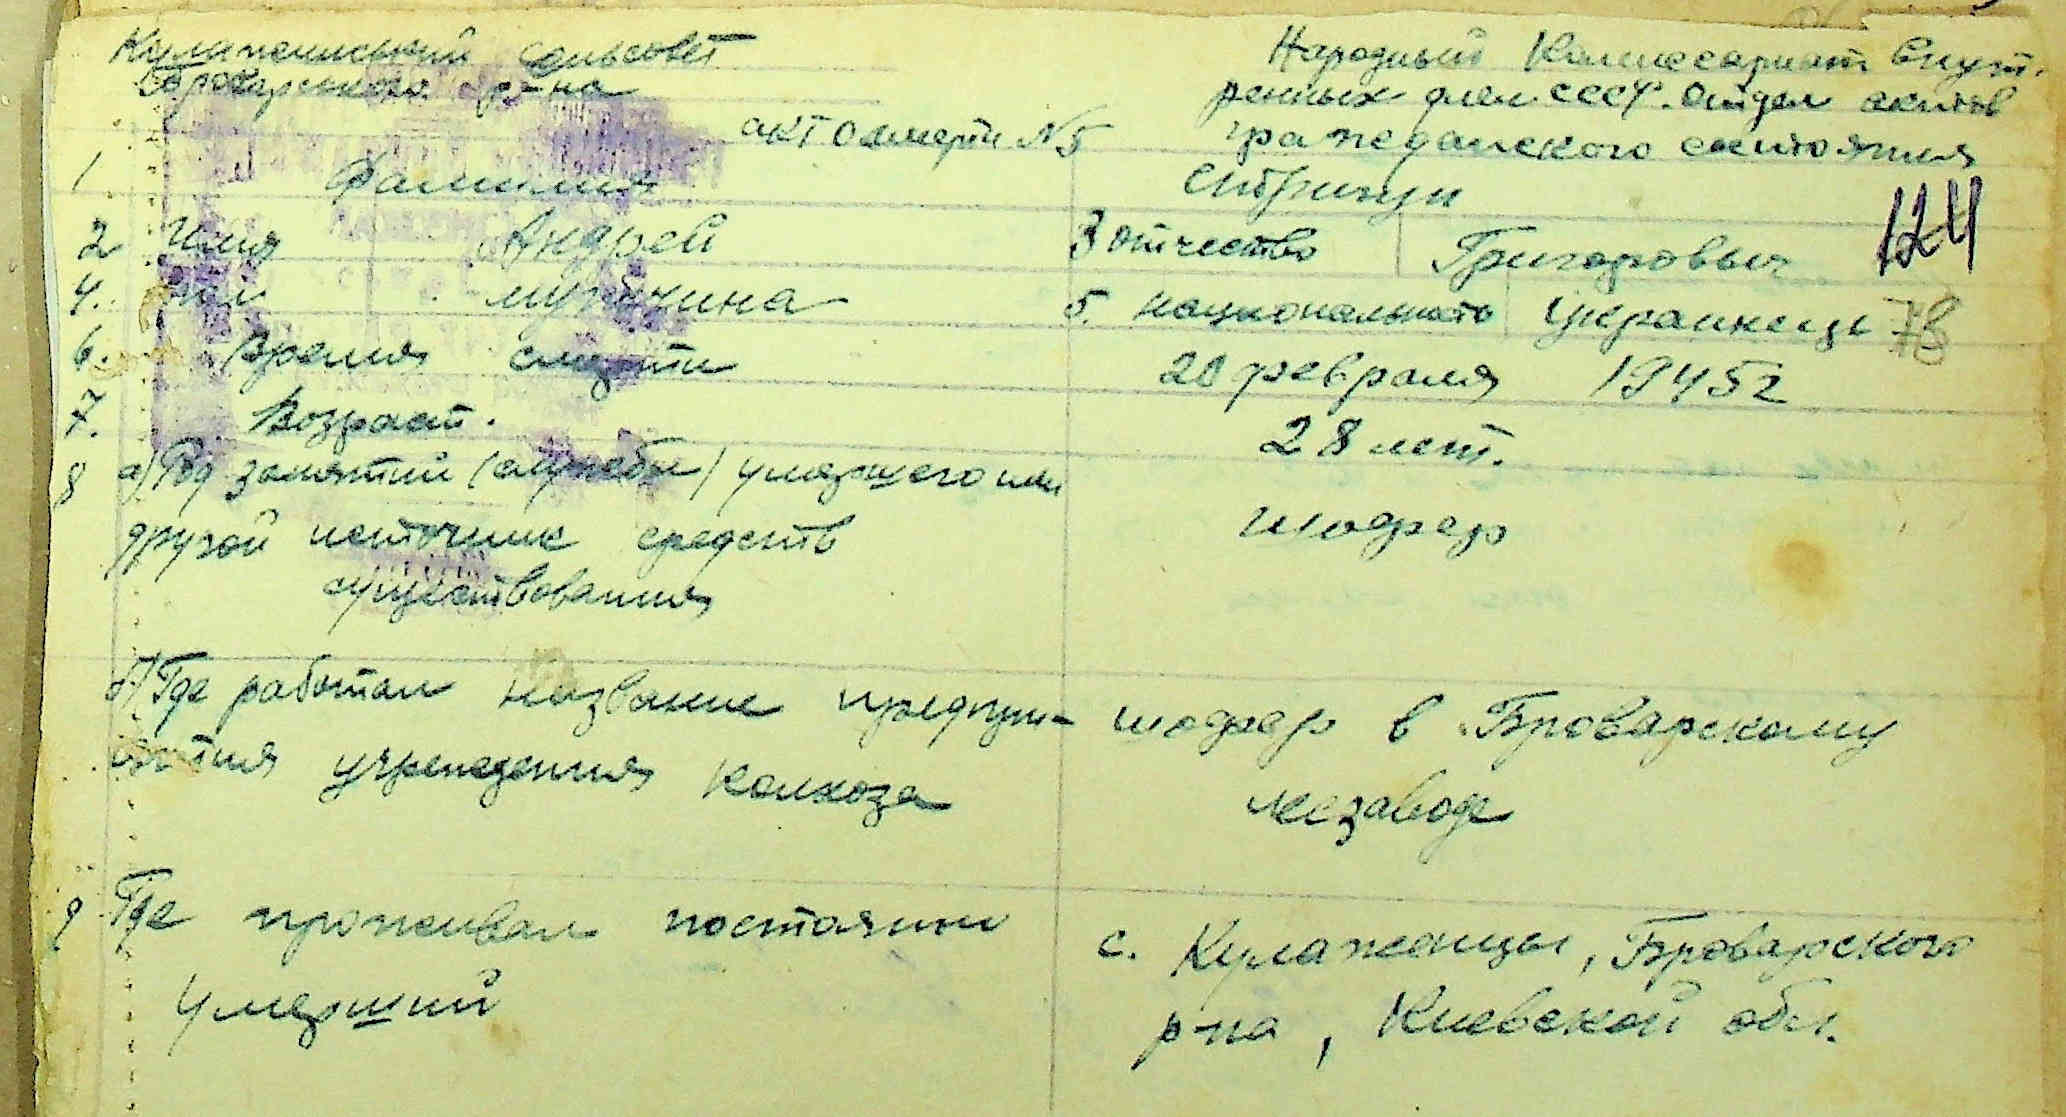 сельсовет
Броварського р-на
Народный Комиссариат Внут.
ренных дел СССР. Отдел актов
гражданского состояния
акт о смерти №5
1 Фамилия
2 Имя Андрей 3 отчество Григоровыч
124
4. пол мужчина 5. национальность Украинець 78
6. Время смерти 20 февраля 1945г
7. Возраст. 28 лет.
8 а) Род занятий (службы) умершего или
другой источник средств шофер
существования
б) Где работал название предпри- шофер в Броварскому
ятия учреждения колхоза
9 Где проживал постоянно с. Кулаженцы, Броварского
умерший р-на, Киевской обл.